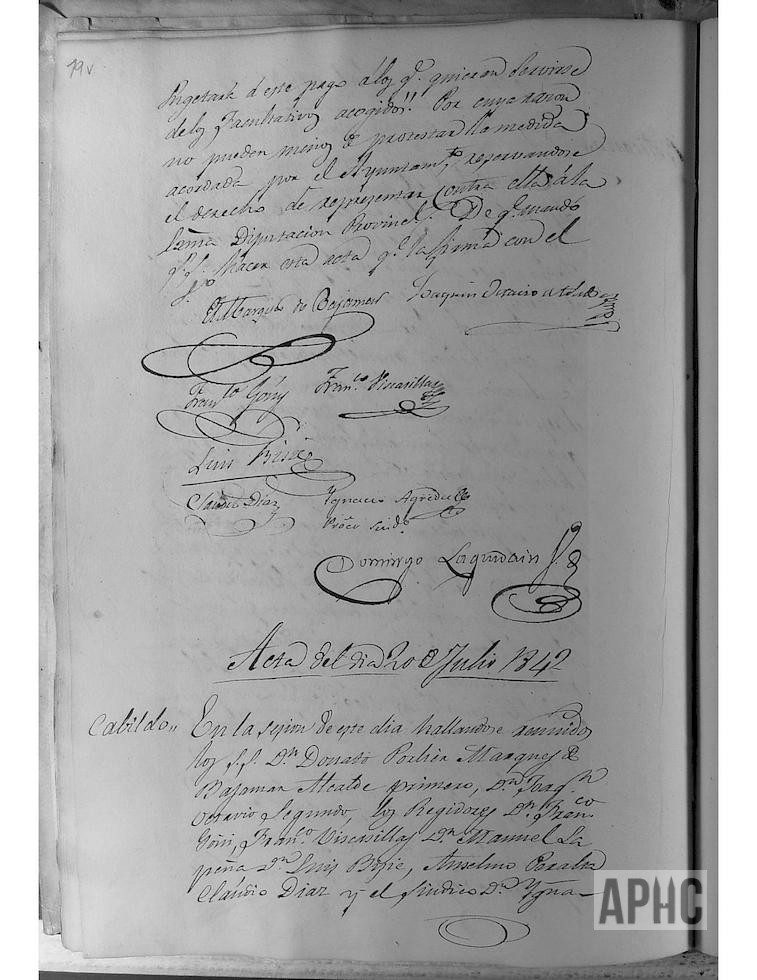 79v
sugetará á este pago álos q.e quieran servirse
delos Facultativos acogidos". Por cuya razon
no pueden menos de protestar la medida
acordada por el Ayuntam.to, reservandose
el derecho de representar contra ella ála
Exma Diputacion Provincl. De q.e mando
hacer esta acta q.e la firma con el
El Marques de Bajamar Joaquin Octavio de Toledo
Fran.co Goñi Fran.co Viscasillas
Luis Bisié
Claudio Diaz Ygnacio Agreda
Pror Sind.o
Domingo Laguardia
Acta del dia 20 de Julio 1842
Cabildo,, En la sesion de este dia hallandose reunidos
los S.S. Dn Donato Porlier Marques de
Bajamar Alcalde primero, Dn Joaq.n
Octavio Segundo, los Regidores Dn Fran.co
Goñi, Fran.co Viscasillas Dn Manuel La
peña Dn Luis Bisie, Anselmo Peralta
Claudio Diaz y el Sindico Dn Ygna-
APHC